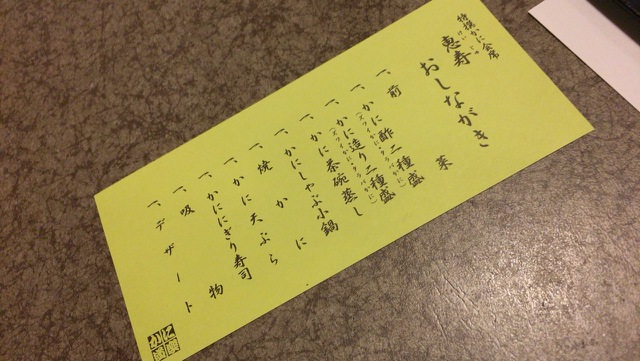 特撰かに会席
恵寿
けいじゅ
おしながき
一、前菜
一、かに酢二種盛
(ズワイかに・タラバかに)
一、かに造り二種盛
(ズワイかに・タラバかに)
一、かに茶碗蒸し
一、かにしゃぶ小鍋
一、焼かに
一、かに天ぷら
一、かににぎり寿司
一、吸物
一、デザート